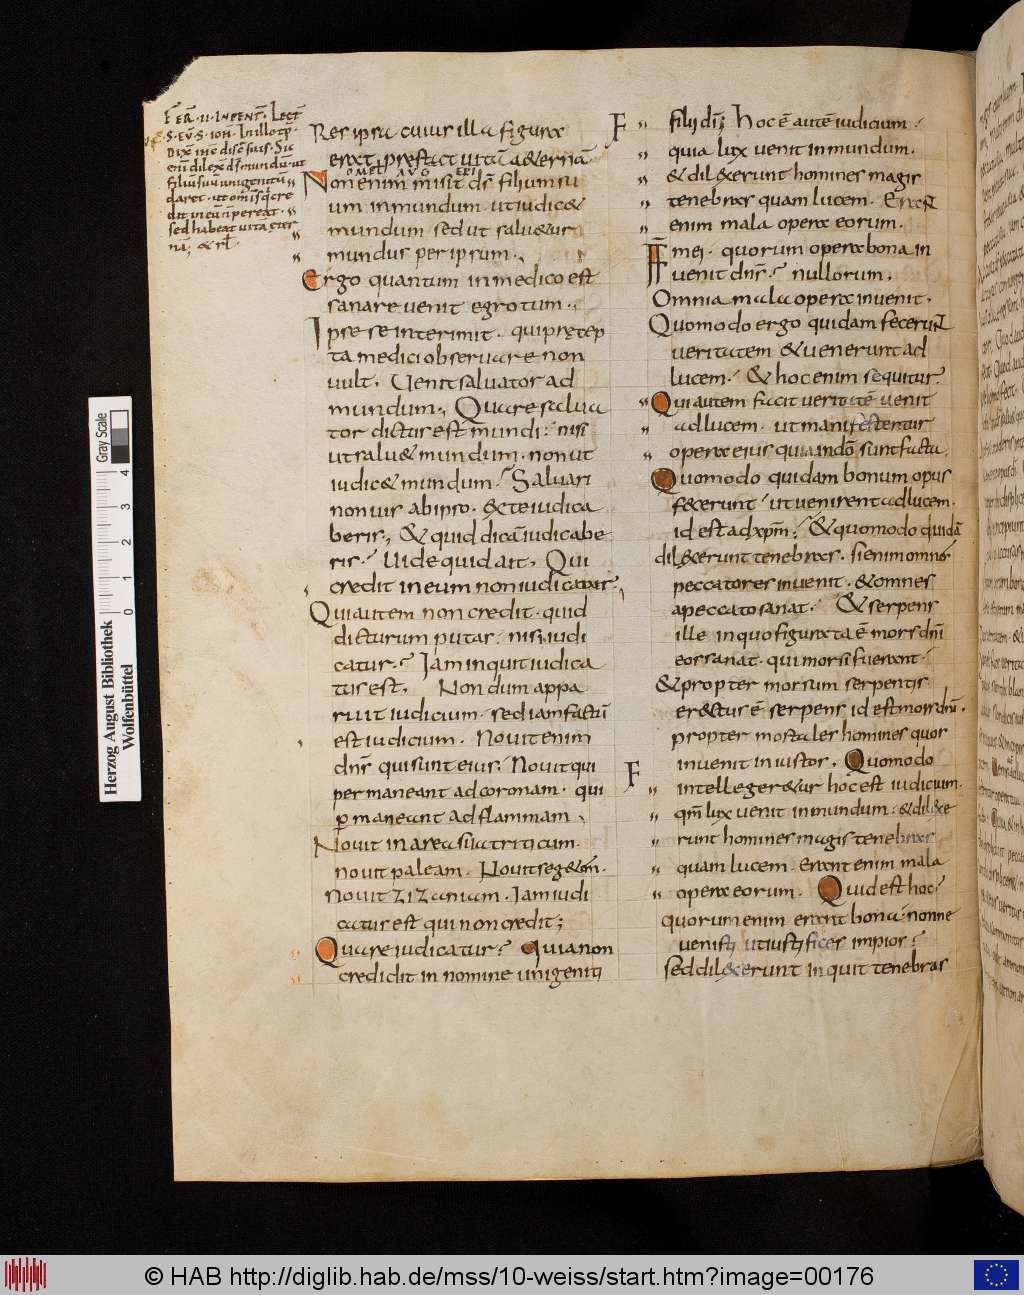 FER · II · IN PENT · LECT
S · EV · S · IOH · In illo tp̄ ·
Dixit ihc discip suis · Sic
enī dilex̄ ds̄ mundū · ut
filiū suū unigenitū
daret · ut om̄is q̄ cre
dit in eū n̄ pereat ·
sed habeat uitā &er
nā; & rl̄
Res ipsa cuius illa figura
erat praestat uitā aeternā
OMEL AVG EPI
Non enim misit ds̄ filium su
um in mundum · ut iudic&
mundum sed ut salu&ur
mundus per ipsum ·
Ergo quantum in medico est
sanare uenit egrotum ·
Ipse se interimit · qui pręcep
ta medici obseruare non
uult · Uenit saluator ad
mundum · Quare salua
tor dictus est mundi · nisi
ut salu& mundum · non ut
iudic& mundum · Saluari
non uis ab ipso · ex te iudica
beris · & quid dicā iudicabe
ris · Uide quid ait · Qui
credit in eum non iudicatur ·
Qui autem non credit · quid
dicturum putas · nisi iudi
catur · Iam inquit iudica
tus est · Nondum appa
ruit iudicium · sed iam factū
est iudicium · Nouit enim
dn̄s qui sunt eius · Nouit qui
permaneant ad coronam · qui
ꝑmaneant ad flammam ·
Nouit in area sua triticum ·
nouit paleam · Nouit seg&em̄ ·
nouit zizaniam · Iam iudi
catus est qui non credit;
Quare iudicatus? Quia non
credidit in nomine unigeniti
F filii dī; Hoc ē autē iudicium ·
quia lux uenit in mundum ·
& dilexerunt homines magis
tenebras quam lucem · Erant
enim mala opera eorum ·
F̄ mei · quorum opera bona in
uenit dn̄s · nullorum ·
Omnia mala opera inuenit ·
Quomodo ergo quidam fecerunt
ueritatem & uenerunt ad
lucem · & hoc enim sequitur ·
Qui autem facit ueritatē uenit
ad lucem · ut manifestentur
opera eius quia in dō sunt facta ·
Quomodo quidam bonum opus
fecerunt · ut uenirent ad lucem ·
id est ad xpm̄ · & quomodo quidā
dil&xerunt tenebras · si enim omnes
peccatores inuenit · & omnes
a peccato sanat · & serpens
ille in quo figurata ē mors dn̄i
eos sanat · qui morsi fuerant ·
& propter morsum serpentis
er&ctus ē serpens id est mors dn̄i ·
propter mortales homines quos
inuenit iniustos · Quomodo
F intelleg&ur hoc est iudicium ·
qm̄ lux uenit in mundum · & dil&xe
runt homines magis tenebras
quam lucem · Erant enim mala
opera eorum · Quid est hoc?
quorum enim erant bona · nonne
uenisti ut iustifices impios?
sed dil&xerunt inquit tenebras
Gray Scale
0 1 2 3 4
Herzog August Bibliothek
Wolfenbüttel
© HAB http://diglib.hab.de/mss/10-weiss/start.htm?image=00176